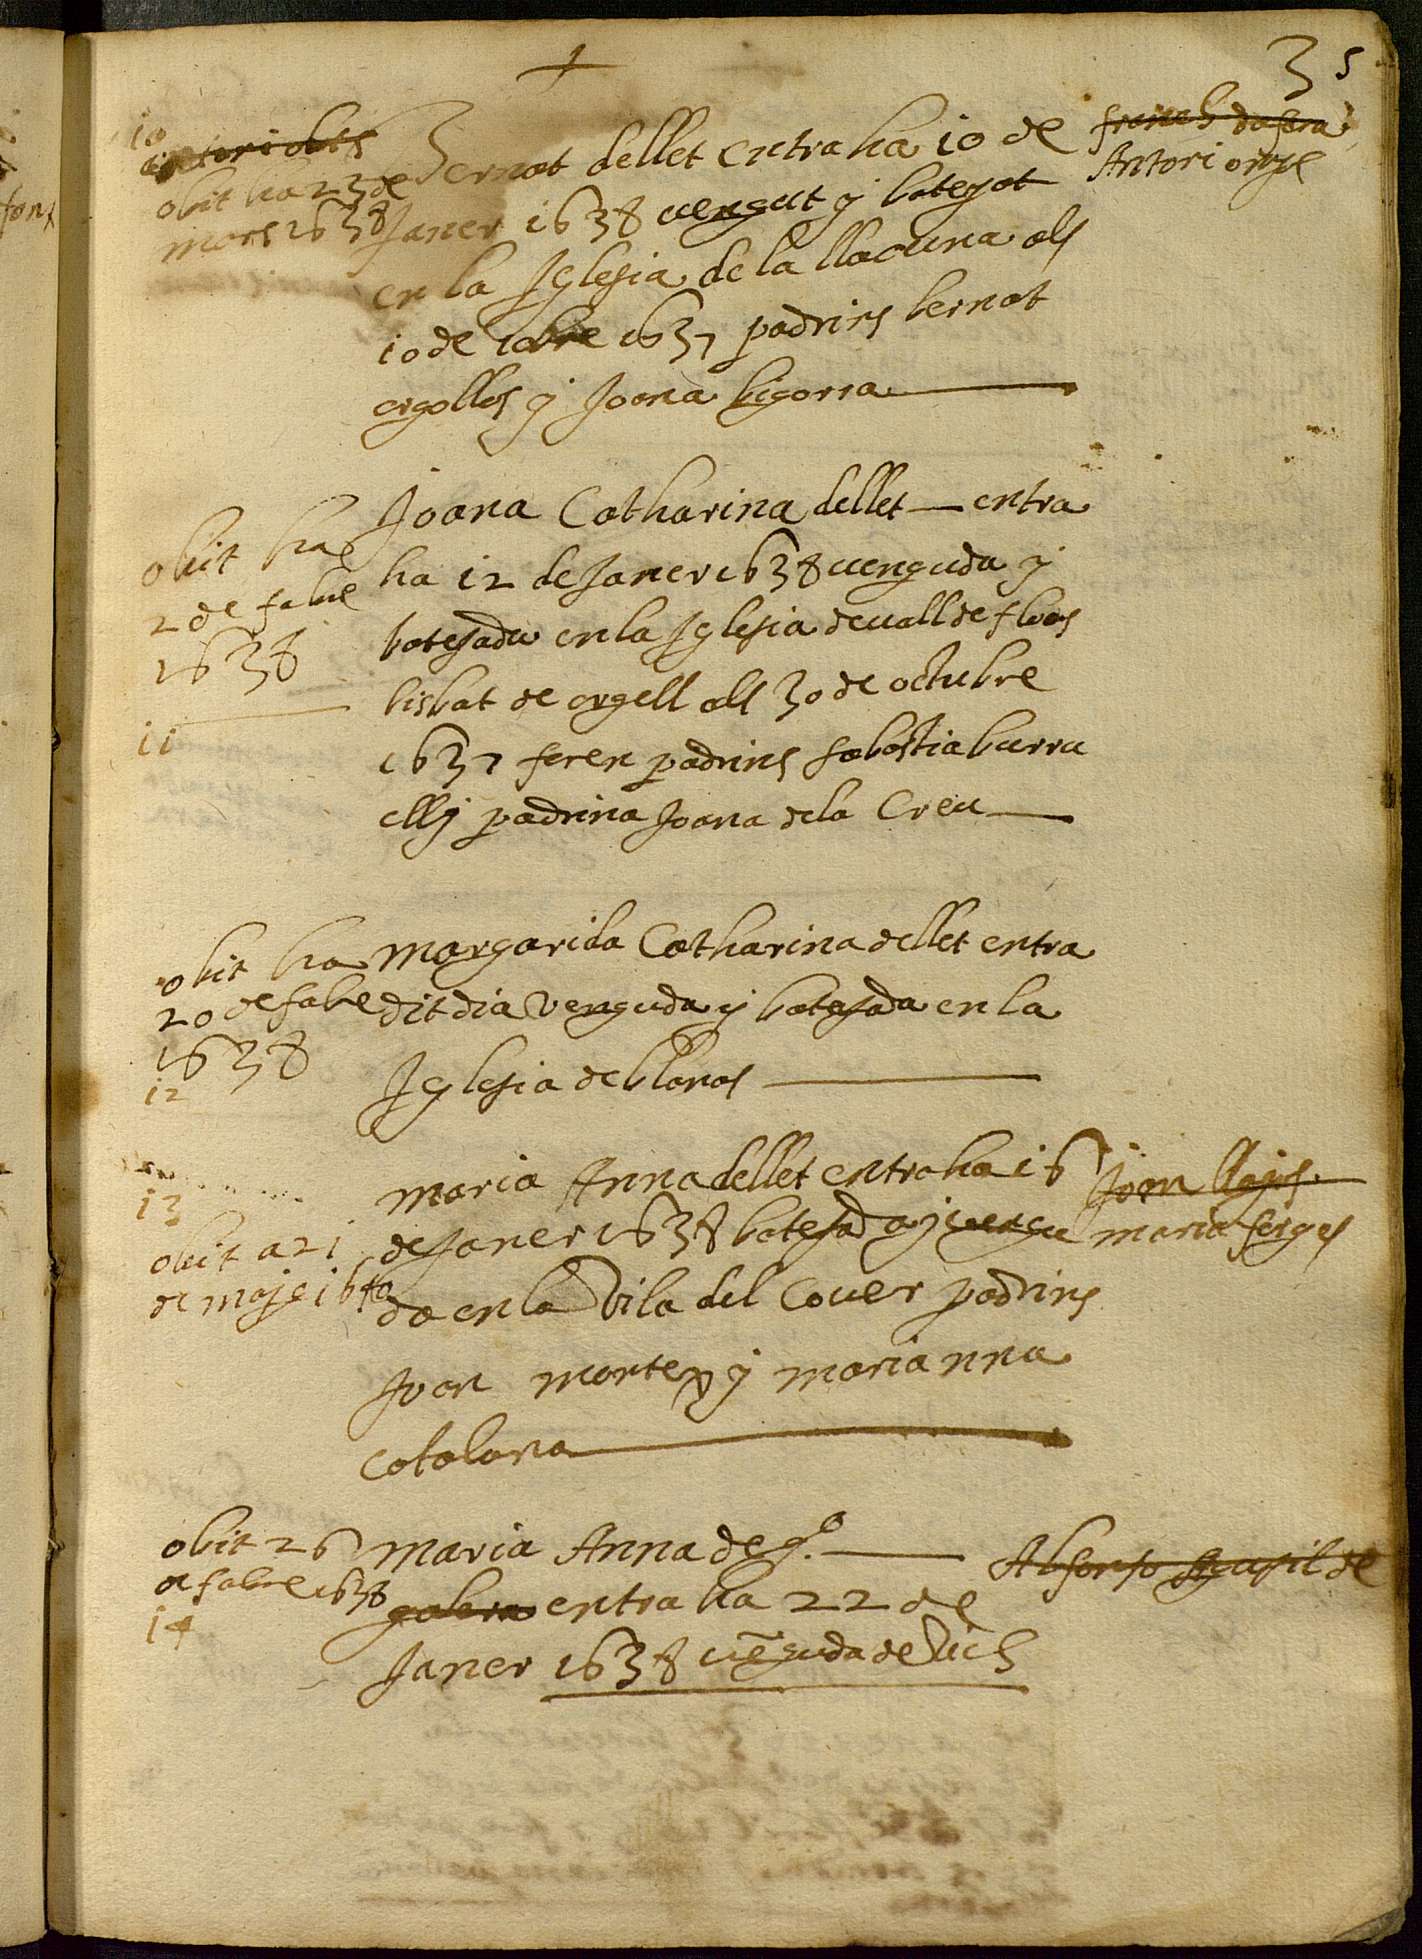 35
10
obit ha 23 de
mars 1638
Bernat dellet entra ha 10 de
Janer 1638 vengut y batejat
en la Iglesia de la llacuna als
10 de 10bre 1637 padrins bernat
orgolles y Joana bigorra
Antoni orige
obit ha
2 de fabre
1638
11
Joana Catharina dellet entra
ha 12 de Janer 1638 venguda y
batejada en la Iglesia de vall de flors
bisbat de orgell als 30 de octubre
1637 foren padrins sabastia burru
ell y padrina Joana de la Creu
obit ha
20 de fabre
1638
12
Margarida Catharina dellet entra
dit dia venguda y batejada en la
Iglesia de blanas
13
obit a 21
de maig 1640
Maria Anna dellet entra ha 16
de Janer 1638 batejada y vengu
da en la vila del Cover padrins
Joan
y marianna
catalana
Joan
maria
obit 26
de fabre 1638
14
Maria Anna de g.ª
galera entra ha 22 de
Janer 1638 vēguda de Vich